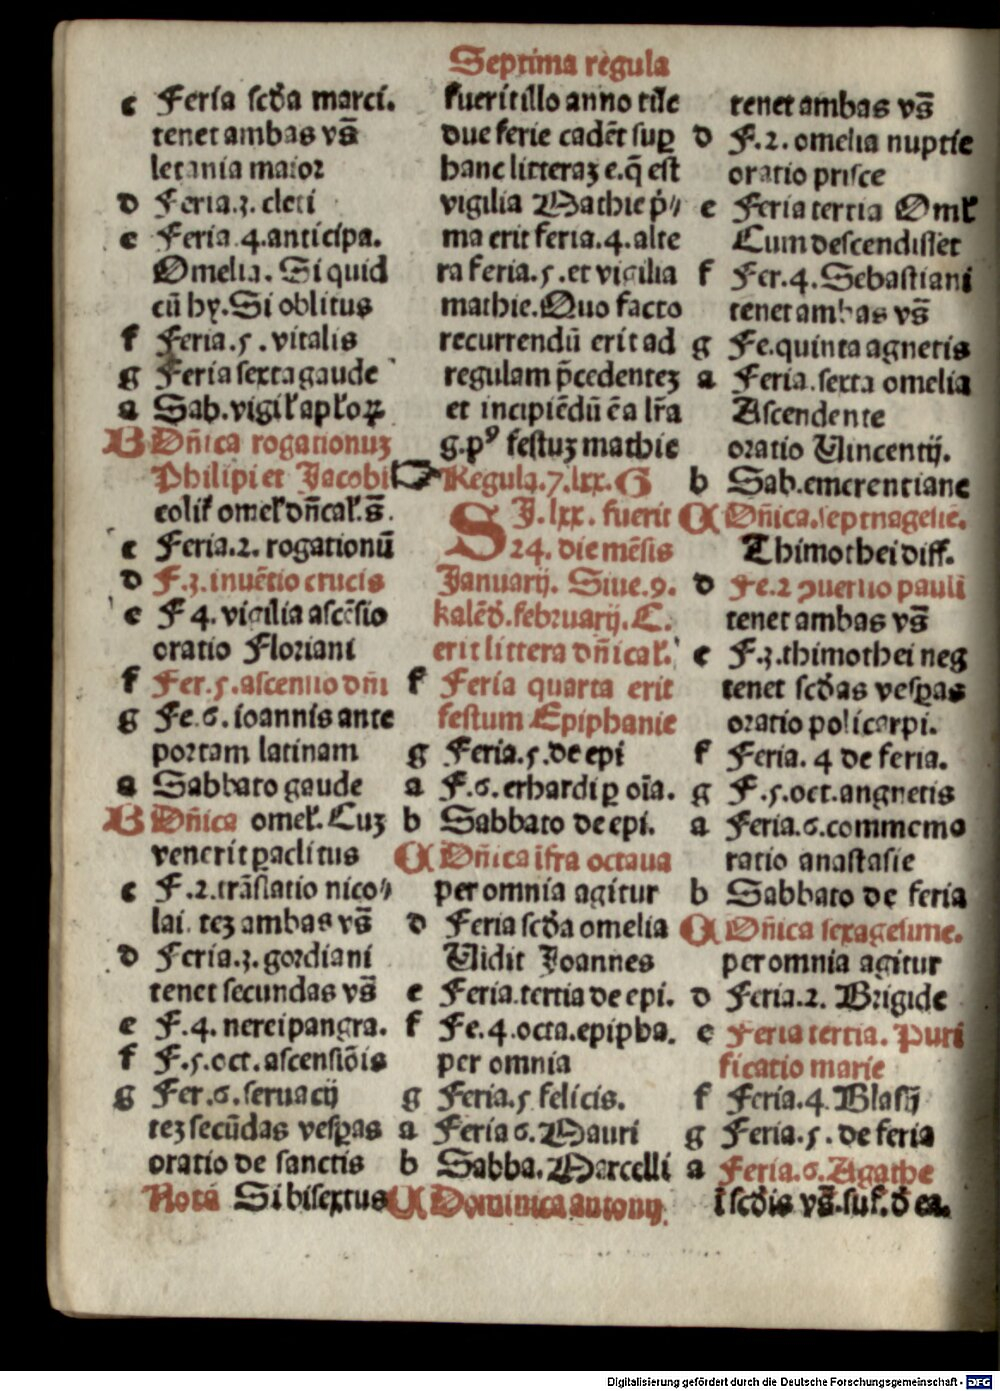 Septima regula
c Feria scďa marci.
tenet ambas vs̄
letania maior
d Feria.3. cleti
e Feria.4.anticipa.
Omelia. Si quid
cū hy. Si oblitus
f Feria.5. vitalis
g Feria sexta gaude
a Sab.vigil aploꝝ
B Dn̄ica rogationuz
Philipi et Jacobi
colit omel dn̄cal.s̄.
c Feria.2. rogationū
d F.3.inuētio crucis
e F 4. vigilia ascēsio
oratio Floriani
f Fer.5.ascensio dn̄i
g Fe.6. ioannis ante
portam latinam
a Sabbato gaude
B Dn̄ica omel. Cuz
venerit paclitus
c F.2.trāslatio nico⸗
lai. tez ambas vs̄
d Feria.3. gordiani
tenet secundas vs̄
e F.4. nerei pangra.
f F.5.oct. ascensiōis
g Fer.6. seruacij
tez secūdas vesꝑas
oratio de sanctis
Nota Si bisextus
fuerit illo anno tūc
due ferie cadēt suꝑ
hanc litteraz e.q̄ est
vigilia Mathie p̄⸗
ma erit feria.4. alte
ra feria.5. et vigilia
mathie. Quo facto
recurrendū erit ad
regulam p̄cedentez
et incipiēdū ē a lr̄a
g.pꝰ festuz mathie
☞ Regula.7.lxx. G
SJ.lxx. fuerit
24. die mēsis
Januarij. Siue.9.
kalēď.februarij. C.
erit littera dn̄ical.
f Feria quarta erit
festum Epiphanie
g Feria.5.de epi
a F.6. erhardi ꝑ oīa.
b Sabbato de epi.
C Dn̄ica īfra octaua
per omnia agitur
d Feria scďa omelia
Vidit Joannes
e Feria.tertia de epi.
f Fe.4.octa.epipha.
per omnia
g Feria.5 felicis.
a Feria 6. Mauri
b Sabba. Marcelli
C Dominica antonij.
tenet ambas vs̄
d F.2. omelia nuptie
oratio prisce
e Feria tertia Oml
Cum descendisset
f Fer.4. Sebastiani
tenet ambas vs̄
g Fe.quinta agnetis
a Feria.sexta omelia
Ascendente
oratio Vincentij.
b Sab.emerentiane
C Dn̄ica.septuagesie.
Thimothei diff.
d Fe.2 ꝯuersio pauli
tenet ambas vs̄
e F.3.thimothei neg
tenet scďas vesꝑas
oratio policarpi.
f Feria. 4 de feria.
g F.5.oct.angnetis
a Feria.6.commemo
ratio anastasie
b Sabbato de feria
C Dn̄ica sexagesime.
per omnia agitur
d Feria.2. Brigide
e Feria tertia. Puri
ficatio marie
f Feria.4. Blasij
g Feria.5. de feria
a Feria.6. Agathe
ī scďis vs̄.suf. ď ea.
Digitalisierung gefördert durch die Deutsche Forschungsgemeinschaft - DFG